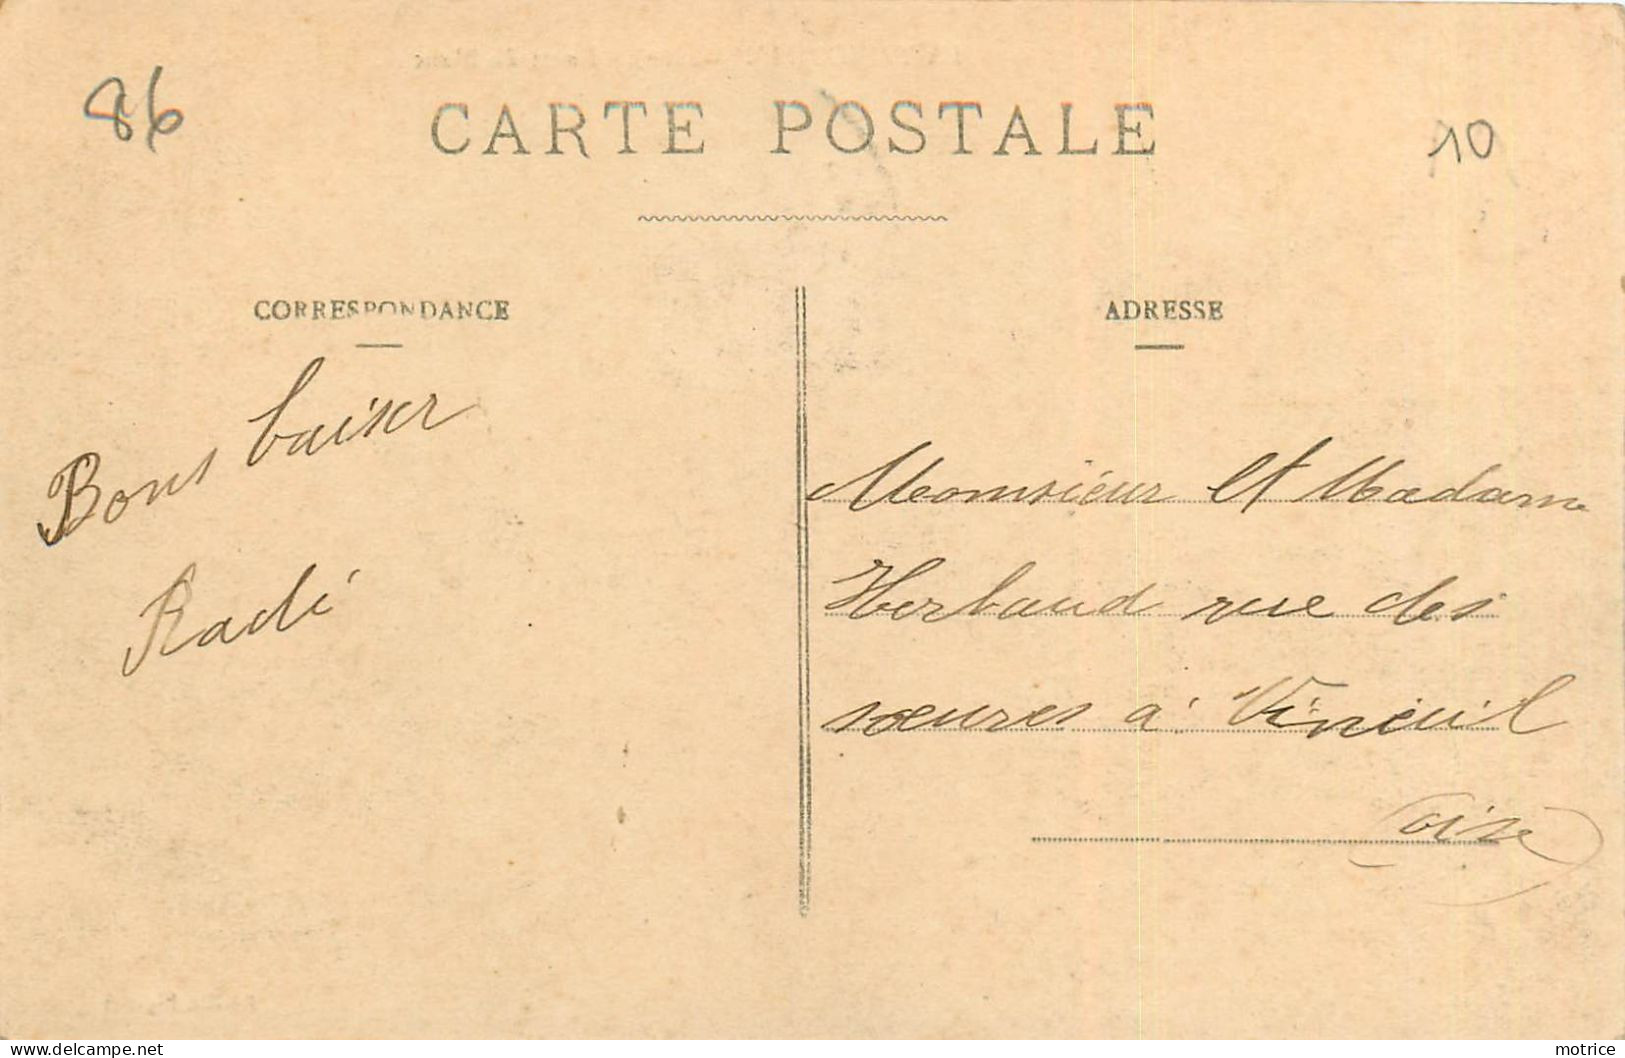 86
CARTE POSTALE
10
CORRESPONDANCE
Bons baiser
Radi
ADRESSE
Monsieur et Madame
Herbaud rue des
sœures à Vineuil
(oise)
motrice